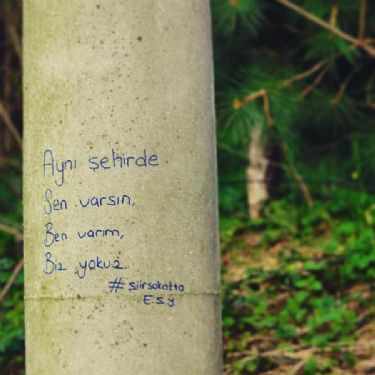 Aynı şehirde
Sen varsın,
Ben varım,
Biz yokuz.
#siirsokakta
E.S.Y